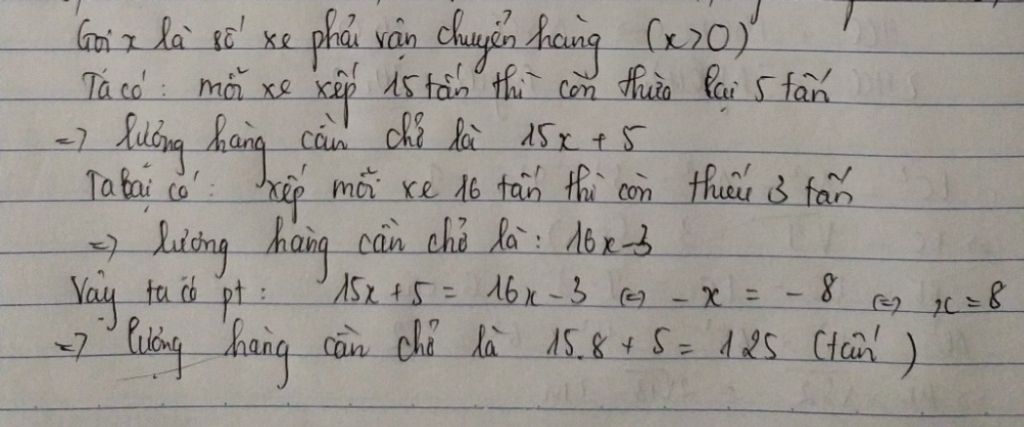 Gọi x là số xe phải vận chuyển hàng (x>0)
Ta có: mỗi xe xếp 15 tấn thì còn thừa lại 5 tấn
=> lượng hàng cần chở là 15x + 5
Ta lại có: xếp mỗi xe 16 tấn thì còn thiếu 3 tấn
=> lượng hàng cần chở là: 16x-3
Vậy ta có pt: 15x + 5 = 16x - 3 <=> - x = - 8 <=> x = 8
=> lượng hàng cần chở là 15.8 + 5 = 125 (tấn)